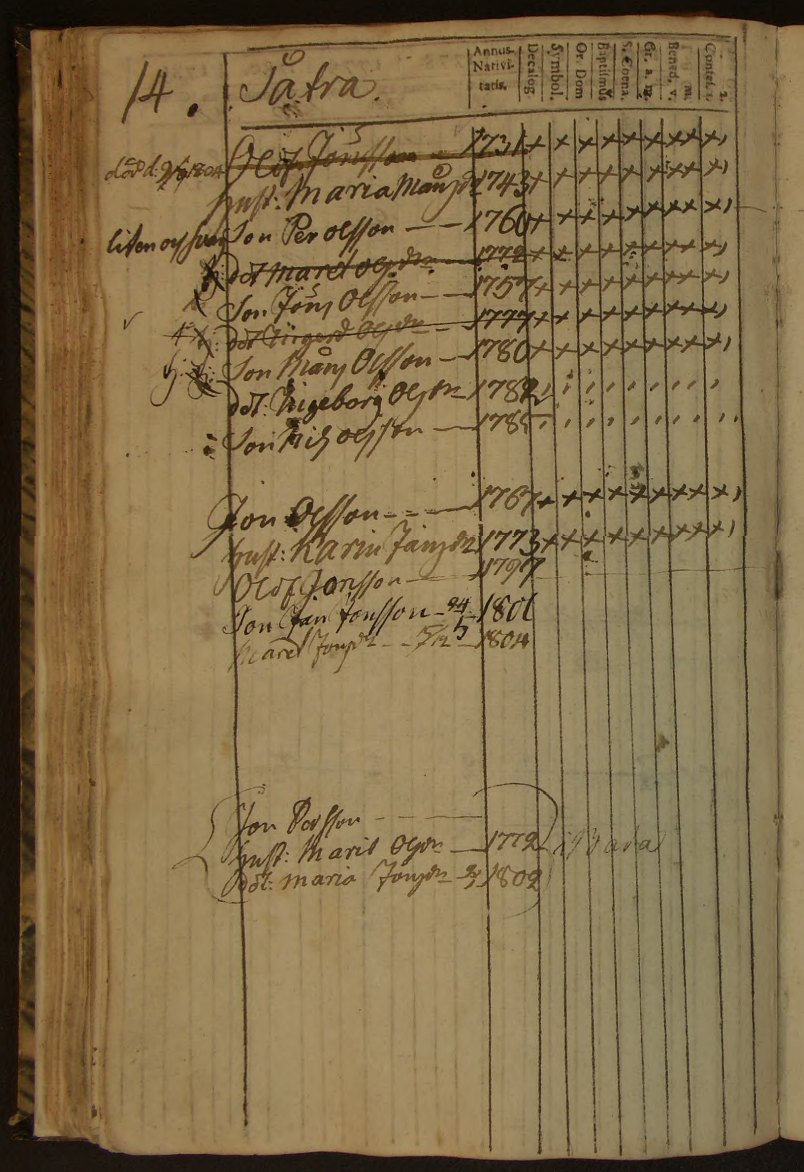 14. Såtra.
Annus Nativitatis. Decalog. Symbol. Or. Dom Baptismus S. Coena. Bened. v. m. Confes. 1. 2.
död d. 1804 Olof Jönsson 1731 + + + + + + + + +
Hust: Maria Månsdr 1743 + + + + + + + + +
liten och Son Per Olsson 1760 + + + + + + + + +
dot Maret Olsdr 1772 + + + + + + + + +
Son Jöns Olsson 1757 + + + + + + + + +
dot Olsdr 1777 + + + + + + + + +
Son Måns Olsson 1780 + + + + + + + + +
dot: Ingeborg Olsdr 1782
Son Nils Olsson 1785
Jon Olsson 1767 + + + + + + + + +
Hust: Karin Jönsdr 1773 + + + + + + + + +
Olof Jonsson 1797
Son Jan Jonsson 24/5 1801
Maret Jonsdr 1804
Jon Persson
Hust: Marit Olsdr 1772
dot: Maria Jonsdr 1802